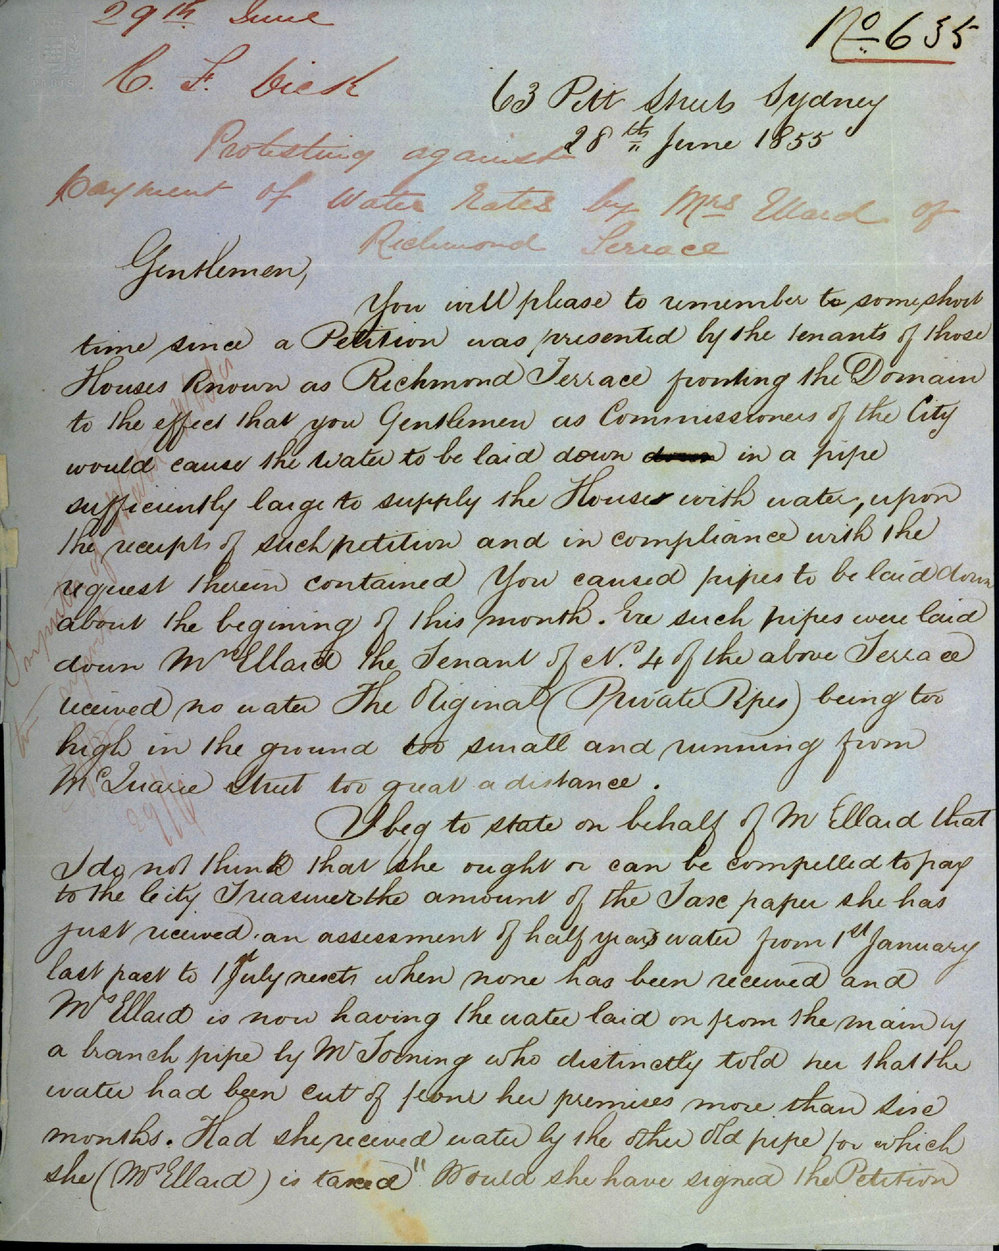 29th June
No 635
C. F. Dick
63 Pitt Street Sydney
28th June 1855
Protesting against
payment of Water Rates by Mrs Ellard of
Richmond Terrace
Gentlemen,
You will please to remember to some short
time since a Petition was presented by the tenants of those
Houses Known as Richmond Terrace fronting the Domain
to the effect that you Gentlemen as Commissioners of the City
would cause the water to be laid down down in a pipe
sufficiently large to supply the Houses with water, upon
the receipt of such petition and in compliance with the
request therein contained You caused pipes to be laid down
about the begining of this month. Ere such pipes were laid
down Mrs Ellard the Tenant of No. 4 of the above Terrace
received no water The Original (Private Pipes) being too
high in the ground too small and running from
McQuarie Street too great a distance.
I beg to state on behalf of M Ellard that
I do not think that she ought or can be compelled to pay
to the City Treasurer the amount of the Tax paper she has
just received. an assessment of half years water from 1st January
last past to 1st July next when none has been received and
Mrs Ellard is now having the water laid on from the main by
a branch pipe by Mr Joening who distinctly told her that the
water had been cut of from her premises more than six
months. Had she received water by the other old pipe for which
she (Mrs Ellard) is taxed" Would she have signed the Petition